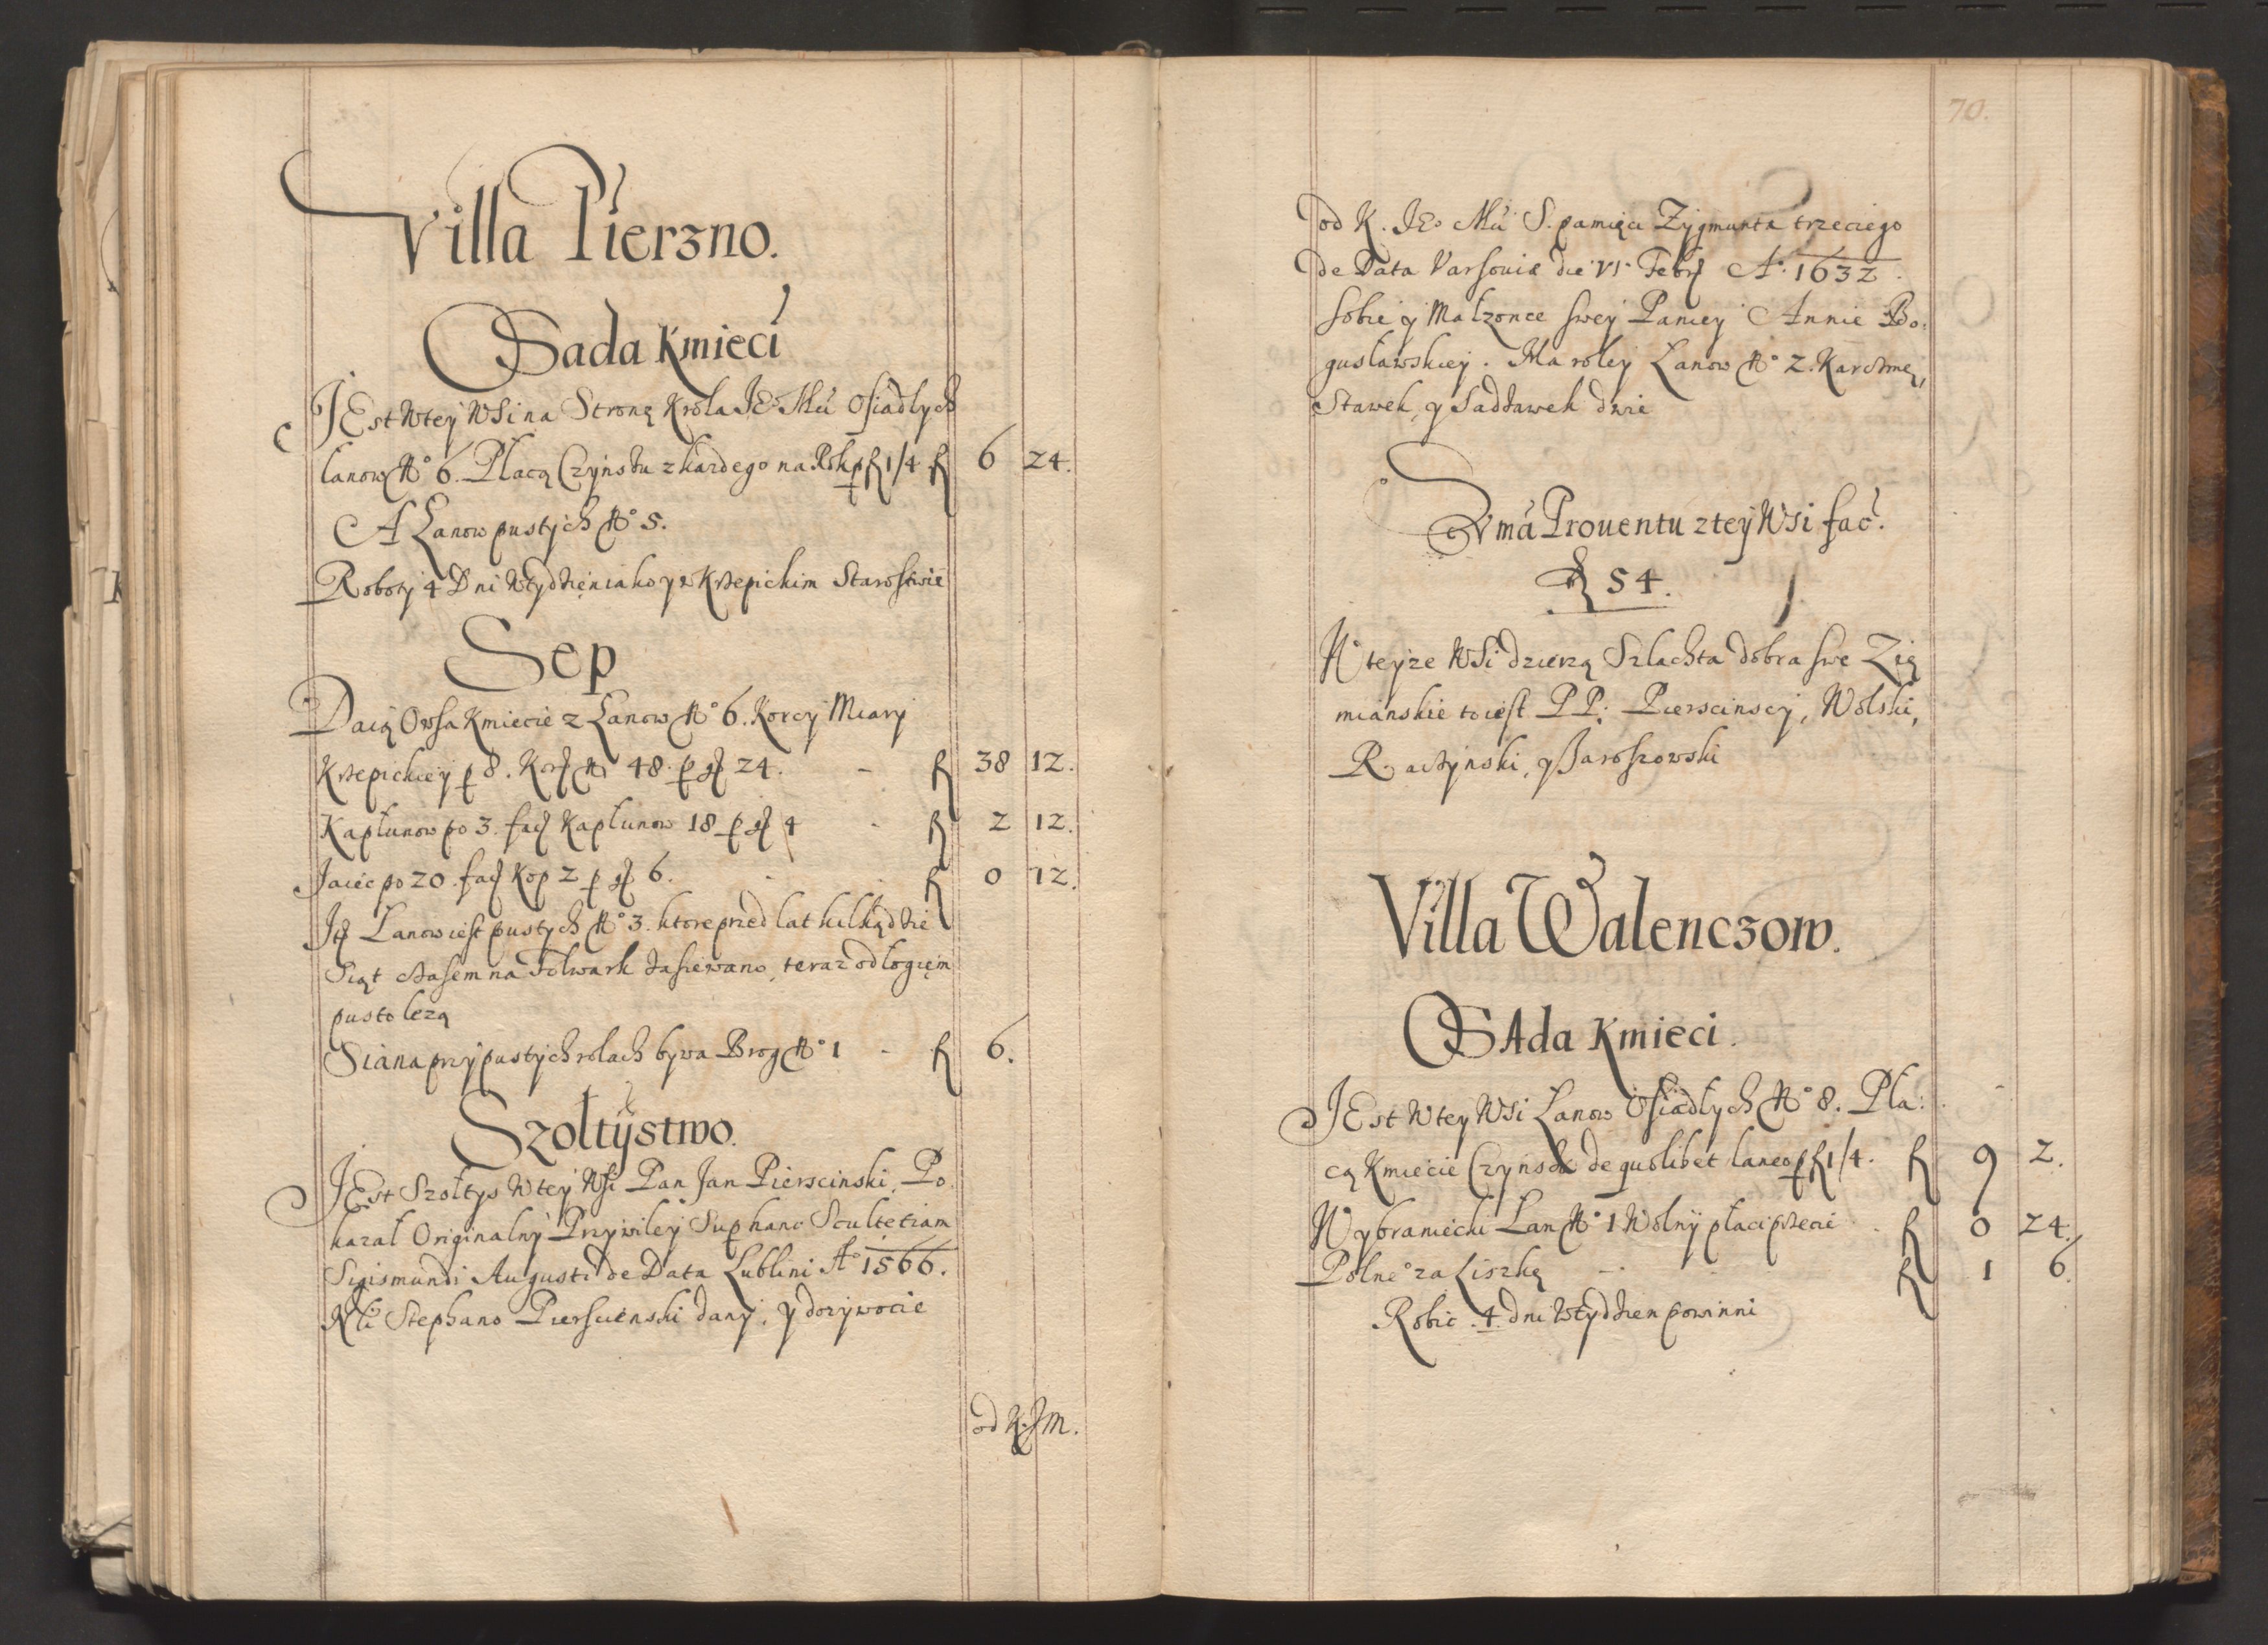 Villa Pierzno.
Sada Kmieci
JEst W tey WSi na Stronę Krola JE° Mći Osiadłych
lanow N° 6. Płacą Czynszu z kazdego na Rok p fl 1/4 fl 6 24.
A Lanow pustych N° 5.
Roboty 4 Dni W tydzień iako y w Krzepickim Starostwie
Sep
Daią Owsa Kmiecie z Lanow N° 6. Korcy Miary
Krzepickiey p 8. Kor N 48. p gr 24. - fl 38 12.
Kapłunow po 3. fac Kapłunow 18 p gr 4 - fl 2 12.
Jaiec po 20. fac Kop 2 p gr 6. fl 0 12.
It Lanow iest pustych N° 3. ktore przed lat kilkądzie
siąt czasem na Folwark zasiewano, teraz odłogiem
pusto lezą
Siana przy pustych rolach bywa Brog N° 1 - fl 6.
Szołtystwo.
JEst Szołtys W tey WSi Pan Jan Pierscinski, Po
kazał Originalny Przywiley Suphano Scultetiam
Sigismundi Augusti de Data Lublini A° 1566.
Nli Stephano Pierscienski dany, y dozywocie
od K. J M.
70.
od K. JE° Mći S. pamięci Zygmunta trzeciego
de Data Varsouiæ die VI Febr A°. 1632.
sobie y Małzonce swey Paniey Annie Bo:
gusławskiey. Ma roley Lanow N° 2. Karczmę,
Stawek, y Sadzawek dwie
Sumá Prouentu z tey WSi fac.
fl 54.
W teyze WSi dzierzą Szlachta dobra swe Zię
mianskie to iest PP. Pierscinscy, Wolski,
Raczynski, y Jaroszowski
Villa Walenczow.
SAda Kmieci.
JEst W tey WSi Lanow Osiadłych N° 8. Pła:
cą Kmiecie Czynszu de quolibet laneo p fl 1/4. fl 9 2.
Wybraniecki Lan N° 1 Wolny płaci przecie fl 0 24.
Polne° za Liszkę - fl 1 6.
Robic 4. dni W tydzien powinni